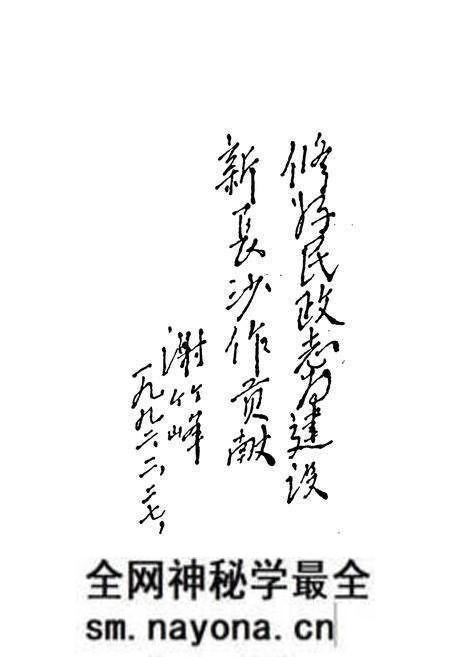 修好民政志为建设
新长沙作贡献
谢竹峰
一九九六、二、二七、
全网神秘学最全
sm.nayona.cn